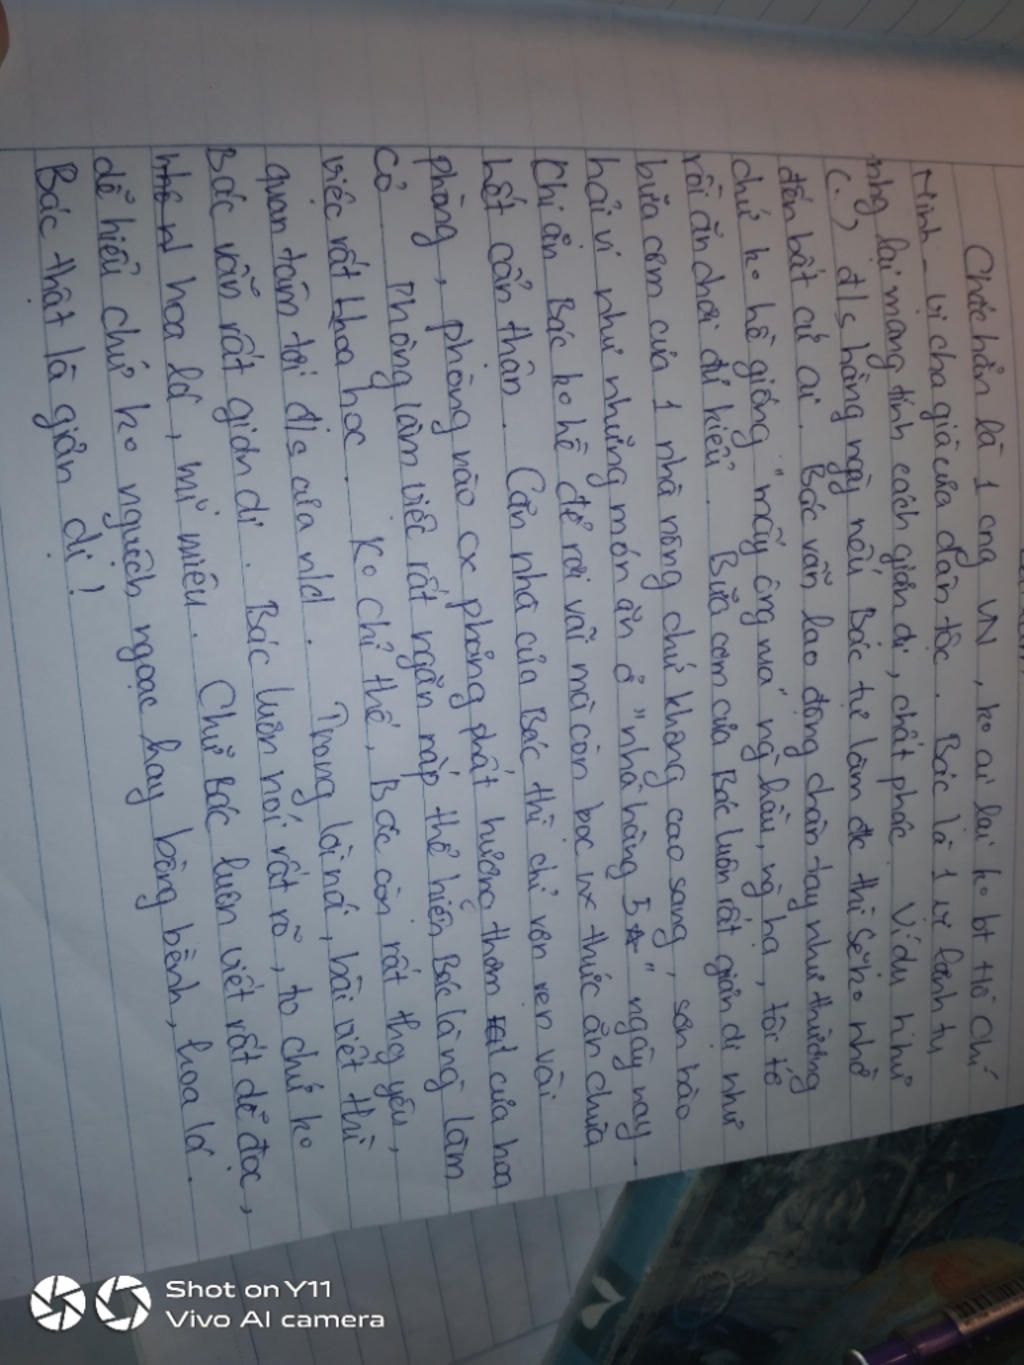 Chắc hẳn là 1 cng VN, ko ai lại ko bt Hồ Chí
Minh - vị cha già của dân tộc. Bác là 1 vị lãnh tụ
nhg lại mang tính cách giản dị, chất phác. Ví dụ như
(.) đ/s hằng ngày nếu Bác tự làm đc thì sẽ ko nhờ
đến bất cứ ai. Bác vẫn lao động chân tay như thường
chứ ko hề giống "mấy ông vua" ng hầu, ng hạ, tôi tớ
rồi ăn chơi đủ kiểu. Bữa cơm của Bác luôn rất giản dị như
bữa cơm của 1 nhà nông chứ không cao sang, sơn hào
hải vị như những món ăn ở "nhà hàng 5☆" ngày nay.
Khi ăn Bác ko hề để rơi vãi mà còn bọc thức ăn chưa
hết cẩn thận. Căn nhà của Bác thì chỉ vỏn vẹn vài
phòng, phòng nào cx phảng phất hương thơm của hoa
cỏ. Phòng làm việc rất ngăn nắp thể hiện Bác là ng làm
việc rất khoa học. Ko chỉ thế, Bác còn rất thg yêu,
quan tâm tới đ/s của nld. Trong lời nói, bài viết thì
Bác vẫn rất giản dị. Bác luôn nói rất rõ, to chứ ko
hoa lá, mĩ miều. Chữ Bác luôn viết rất dễ đọc,
dễ hiểu chứ ko nguệch ngoạc hay bồng bềnh, hoa lá.
Bác thật là giản dị!
7
Shot on Y11
Vivo AI camera